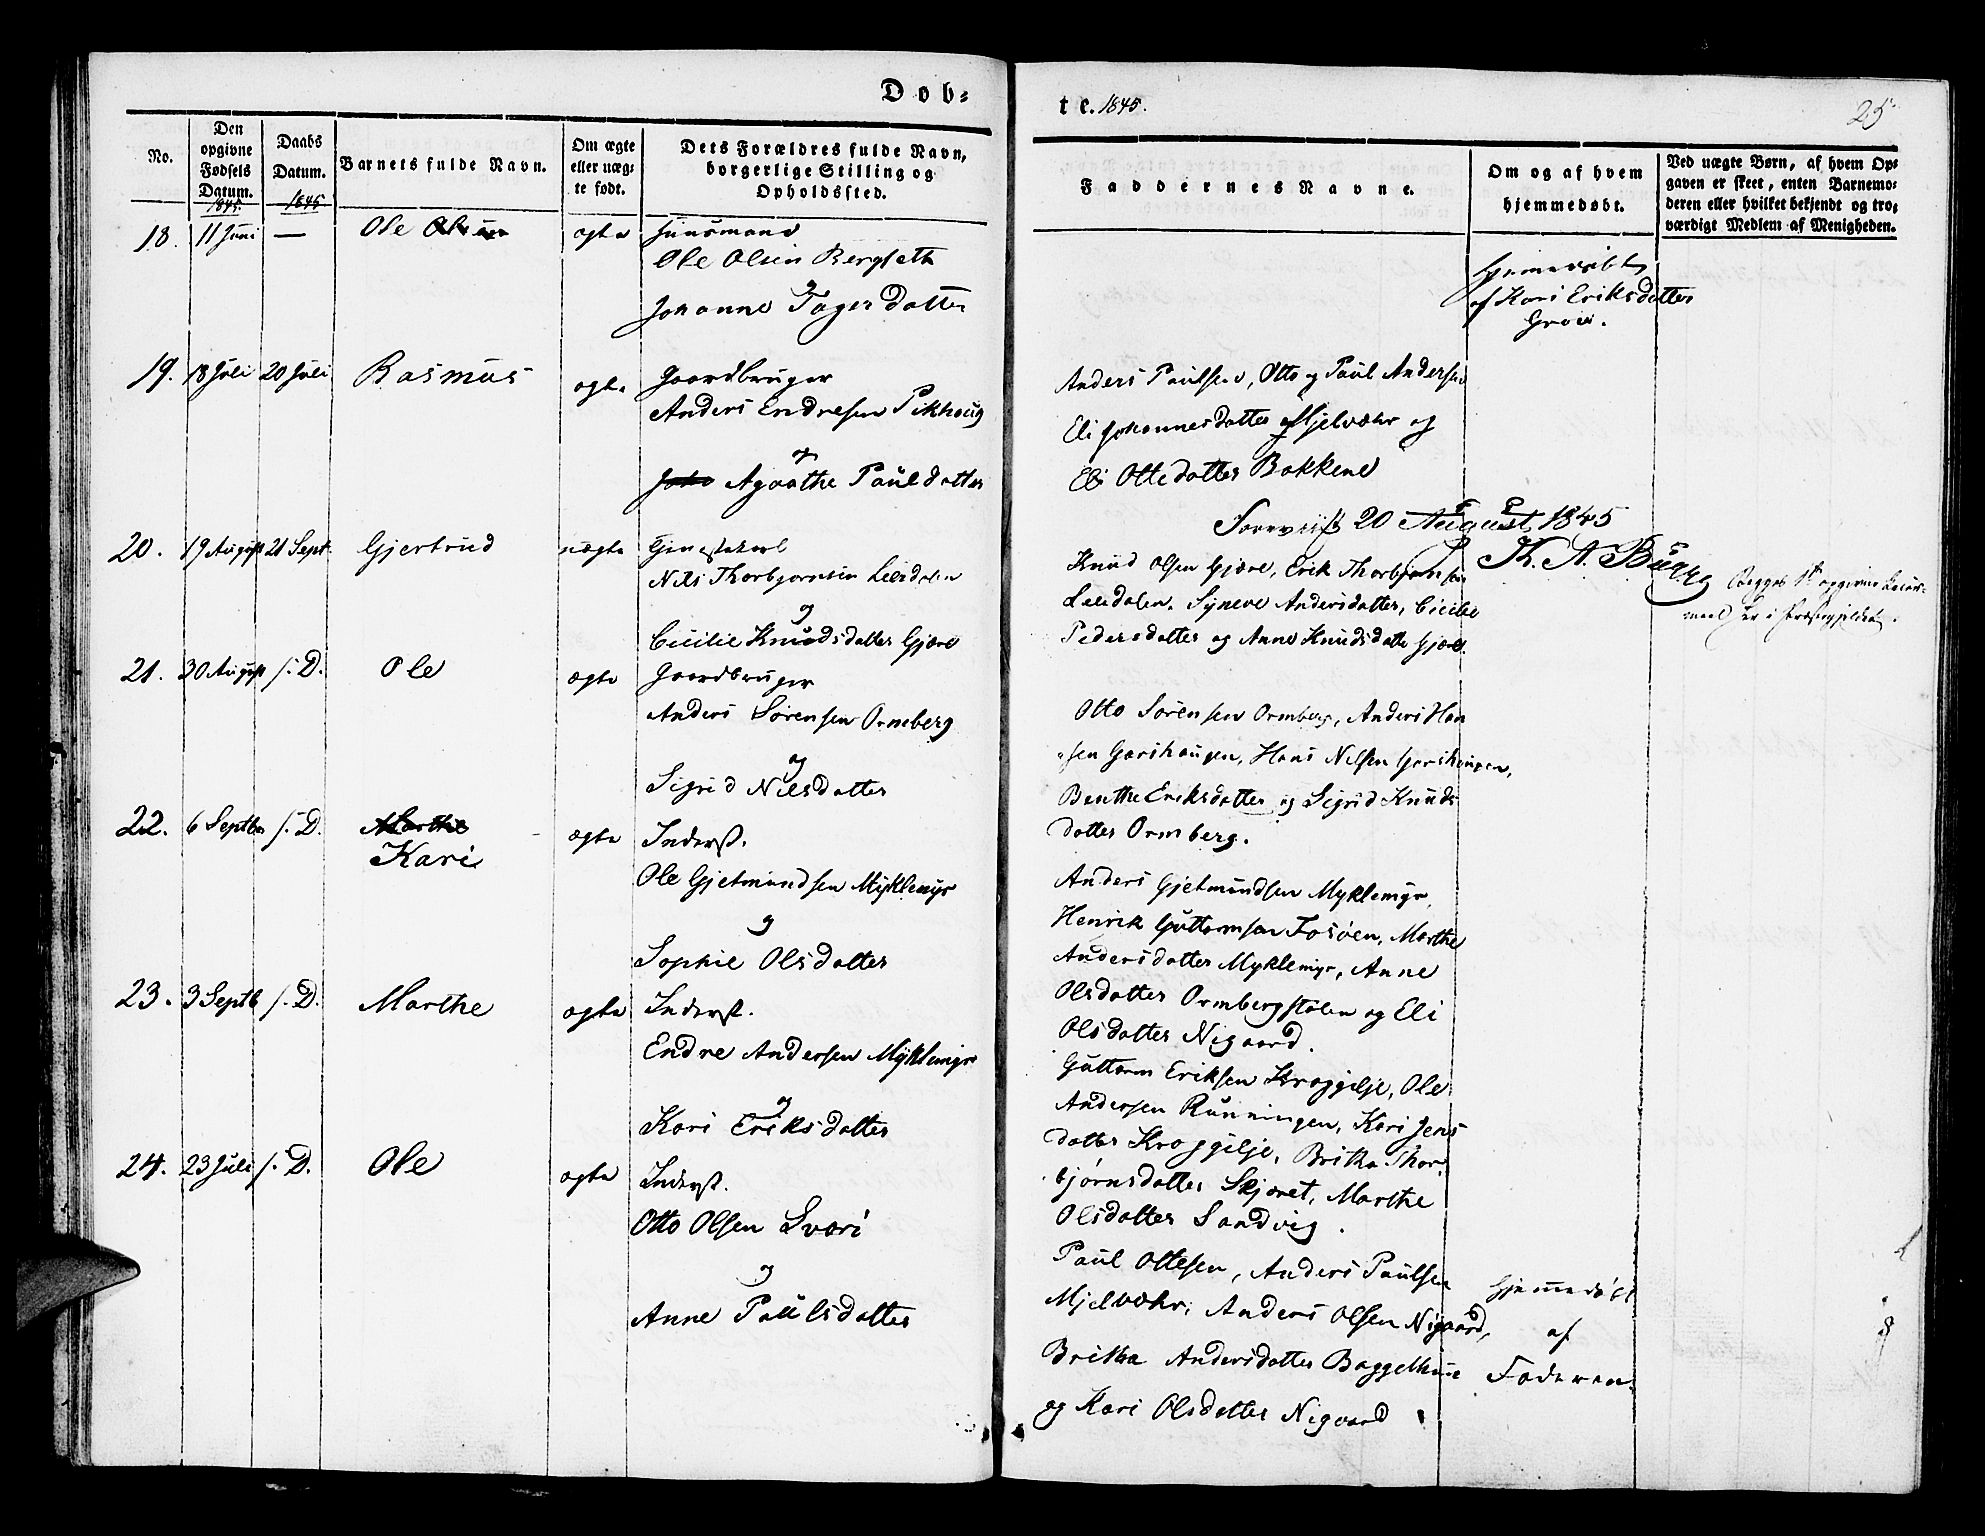 Døb=
No.
Den
opgivne
Fødsels
Datum.
1845.
Daabs
Datum.
1845
Barnets fulde Navn.
Om ægte
eller uæg-
te født.
Dets Forældres fulde Navn,
borgerlige Stilling og
Opholdssted.
18.
11 Juni
—
Ole Olsen
ægte
Huusmand
Ole Olsen Bergseth
og
Johanne Tagesdatter
19.
18 Juli
20 Juli
Rasmus
ægte
Gaardbruger
Anders Endresen Pikhoug
og
Agaathe Paulsdatter
20.
19 August
21 Sept.
Gjertrud
uægte
Tjenestekarl
Nils Thorbjørnsen Leirdalen
og
Cicilie Knudsdatter Gjære
21.
30 August
s. D.
Ole
ægte
Gaardbruger
Anders Sørensen Ormberg
og
Sigrid Nilsdatter
22.
6 Septbr
s. D.
Marthe
Kari
ægte
Inderst.
Ole Gjetmundsen Myklemyr
og
Sophie Olsdatter
23.
3 Septb
s. D.
Marthe
ægte
Inderst.
Endre Andersen Myklemyr
og
Kari Eriksdatter
24.
23 Juli
s. D.
Ole
ægte
Inderst.
Otto Olsen Svari
og
Anne Paulsdatter
te. 1845.
25
Faddernes Navne.
Om og af hvem
hjemmedøbt.
Ved uægte Børn, af hvem Op-
gaven er skeet, enten Barnemo-
deren eller hvilket bekjendt og tro-
værdigt Medlem af Menigheden.
Hjemedøbt
af Kari Eriksdatter
Anders Paulsen, Otto og Paul Andersen
Eli Johannesdatter Mjelvæhr og
Eli Ottedatter Bakkene
20 August 1845
K. A. Bugge
Knud Olsen Gjære, Erik Thorbjørnsen
Leirdalen, Syneve Andersdatter, Cicilie
Pedersdatter og Anne Knudsdatter Gjære.
Begges 1ste opgivne Leier-
maal her i Præstegjeldet.
Otto Sørensen Ormberg, Anders Han
sen Garshaugen, Hans Nilsen Garshaugen,
Benthe Eriksdatter og Sigrid Knuds
datter Ormberg.
Anders Gjetmundsen Myklemyr,
Henrik Guttormsen Fosøen, Marthe
Andersdatter Myklemyr, Anne
Olsdatter Ormbergstølen og Eli
Olsdatter Nigaard.
Guttorm Eriksen Kroggilje, Ole
Andersen Rønningen, Kari Jens
datter Kroggilje, Britha Thor
bjørnsdatter Skjæret, Marthe
Olsdatter Sandvig.
Paul Ottesen, Anders Paulsen
Mjelvæhr, Anders Olsen Nigaard,
Britha Andersdatter Baggethun
og Kari Olsdatter Nigaard
Hjemmedøbt
af
Faderen